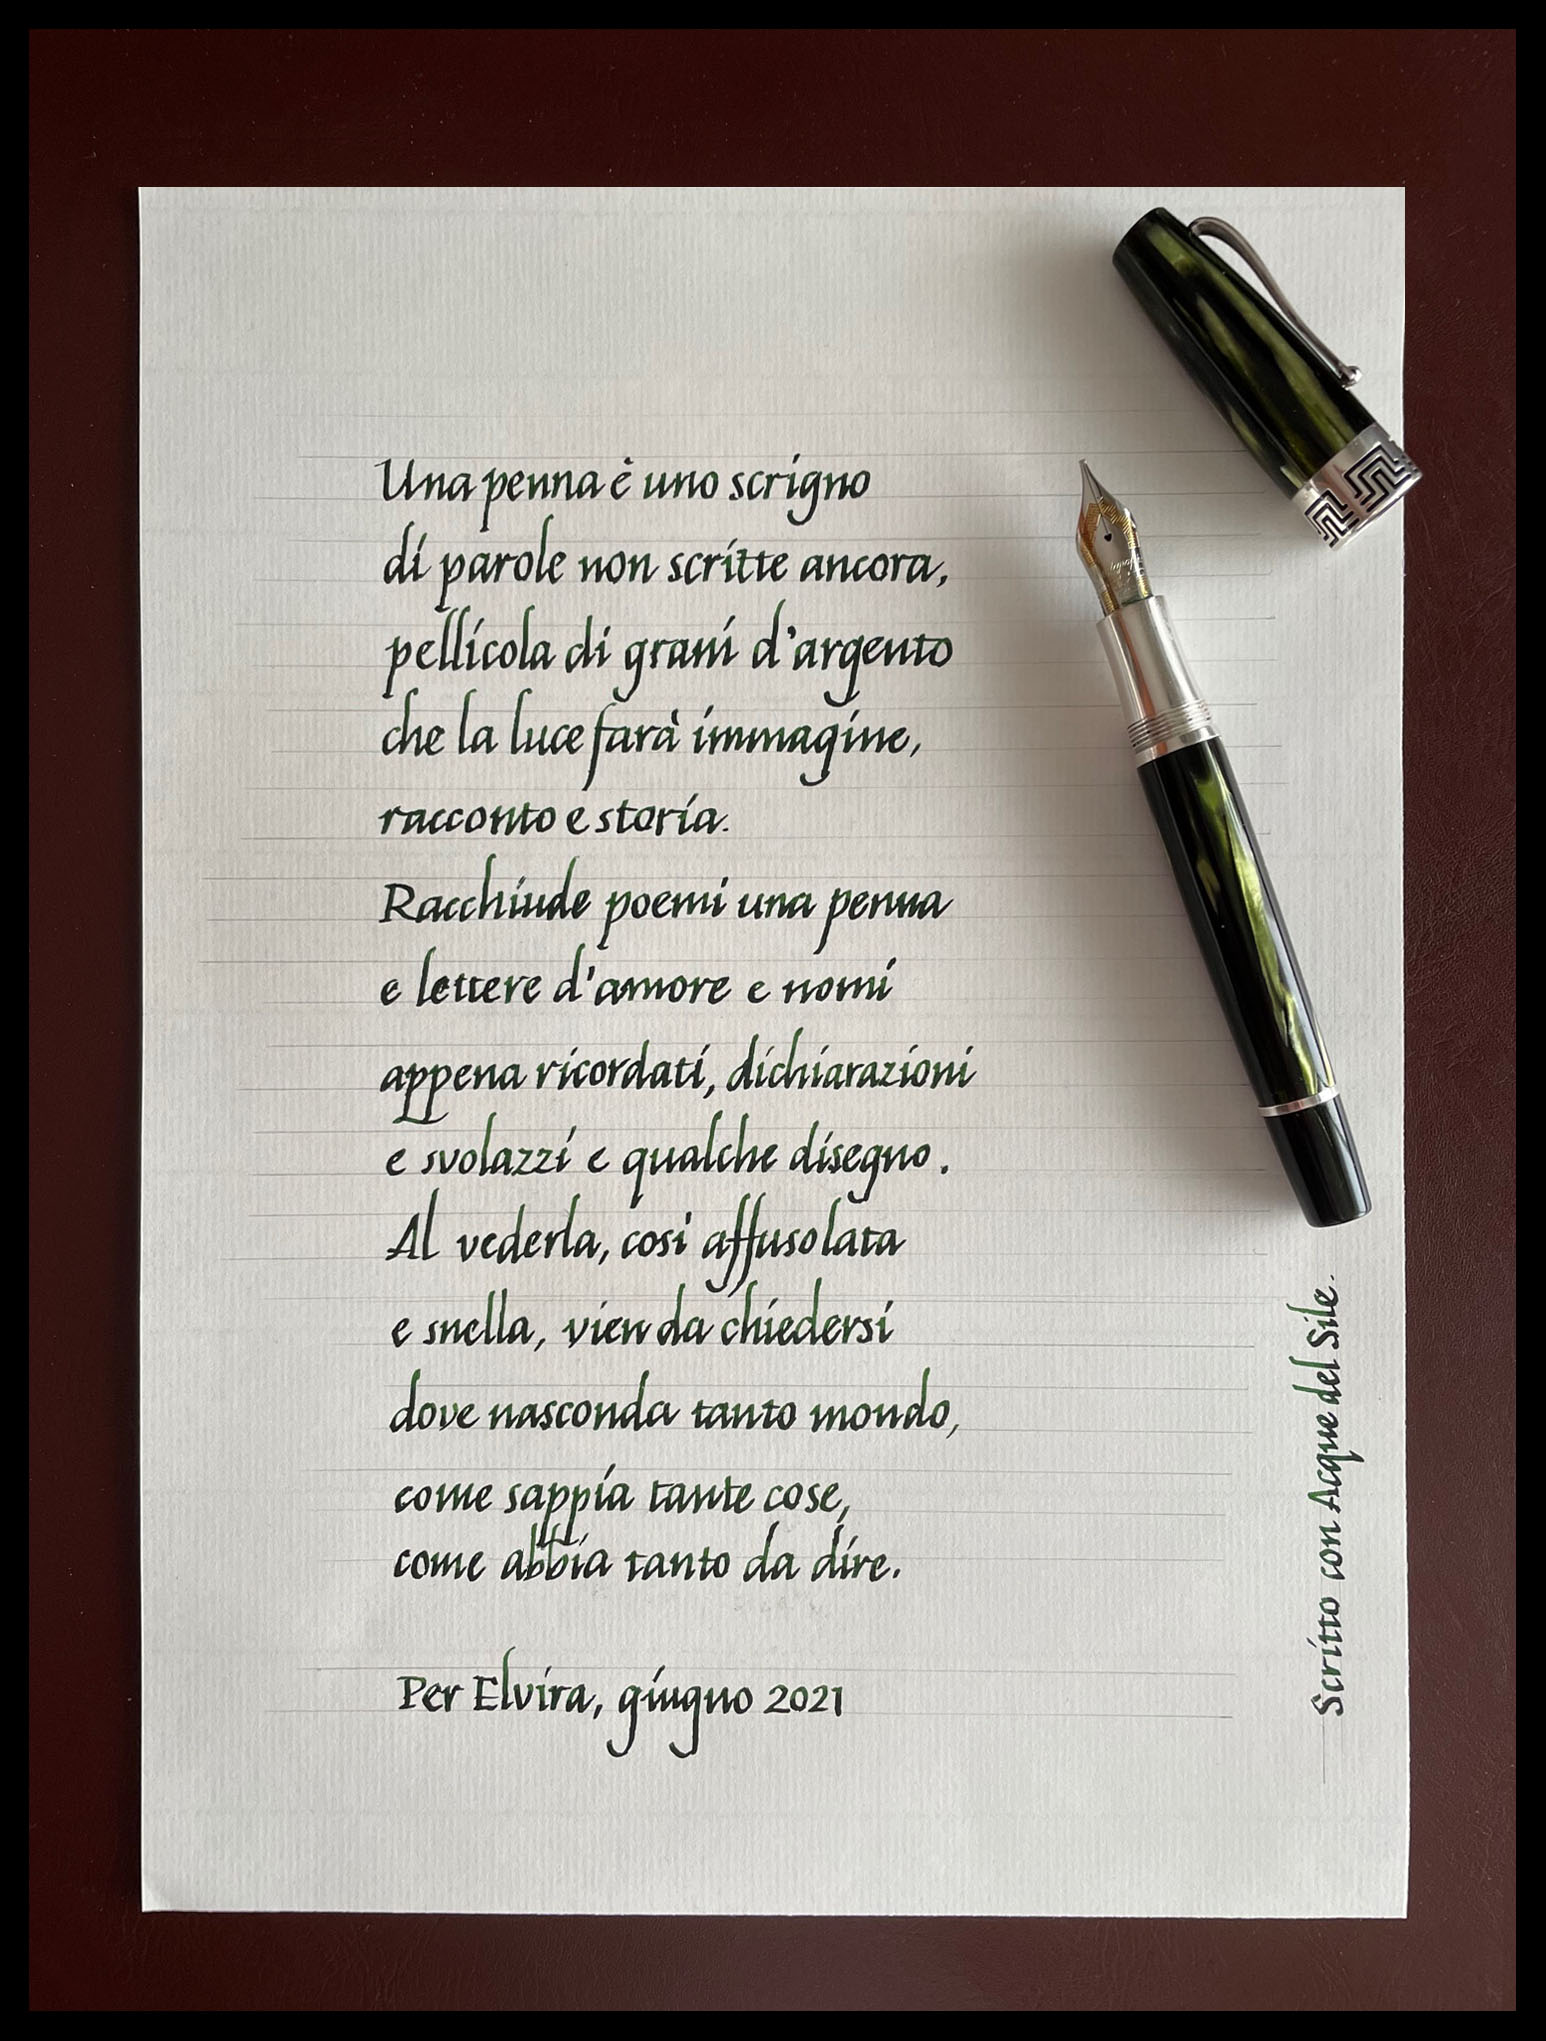 Una penna è uno scrigno
di parole non scritte ancora,
pellicola di grani d'argento
che la luce farà immagine,
racconto e storia.
Racchiude poemi una penna
e lettere d'amore e nomi
appena ricordati, dichiarazioni
e svolazzi e qualche disegno.
Al vederla, così affusolata
e snella, vien da chiedersi
dove nasconda tanto mondo,
come sappia tante cose,
come abbia tanto da dire.
Per Elvira, giugno 2021
Scritto con Acque del Sile.